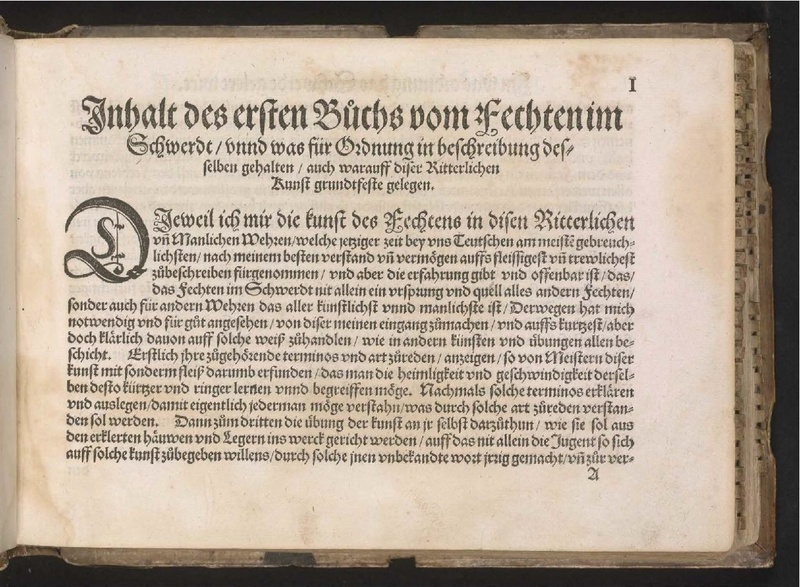 I
Inhalt des ersten Bůchs vom Fechten im
Schwerdt / vnnd was für Ordnung in beschreibung des-
selben gehalten / auch warauff diser Ritterlichen
Kunst grundtfeste gelegen.
DJeweil ich mir die kunst des Fechtens in disen Ritterlichen
vñ Manlichen Wehren / welche jetziger zeit bey vns Teutschen am meistẽ gebreuch-
lichsten / nach meinem besten verstand vñ vermögen auffs fleissigest vñ trewlichest
zůbeschreiben fürgenommen / vnd aber die erfahrung gibt vnd offenbar ist / das /
das Fechten im Schwerdt nit allein ein vrsprung vnd quell alles andern Fechten /
sonder auch für andern Wehren das aller kunstlichst vnnd manlichste ist / Derwegen hat mich
notwendig vnd für gůt angesehen / von diser meinen eingang zůmachen / vnd auffs kurtzest / aber
doch klärlich dauon auff solche weiß zůhandlen / wie in andern künsten vnd übungen allen be-
schicht. Erstlich jhre zůgehörende terminos vnd art zůreden / anzeigen / so von Meistern diser
kunst mit sonderm fleiß darumb erfunden / das man die heimligkeit vnd geschwindigkeit dersel-
ben desto kürtzer vnd ringer lernen vnnd begreiffen möge. Nachmals solche terminos erklären
vnd auslegen / damit eigentlich jederman möge verstahn / was durch solche art zůreden verstan-
den sol werden. Dann zům dritten die übung der kunst an jr selbst darzůthun / wie sie sol aus
den erklerten häuwen vnd Legern ins werck gericht werden / auff das nit allein die Jugent so sich
auff solche kunst zůbegeben willens / durch solche jnen vnbekandte wort jrrig gemacht / vñ zůr ver-
A